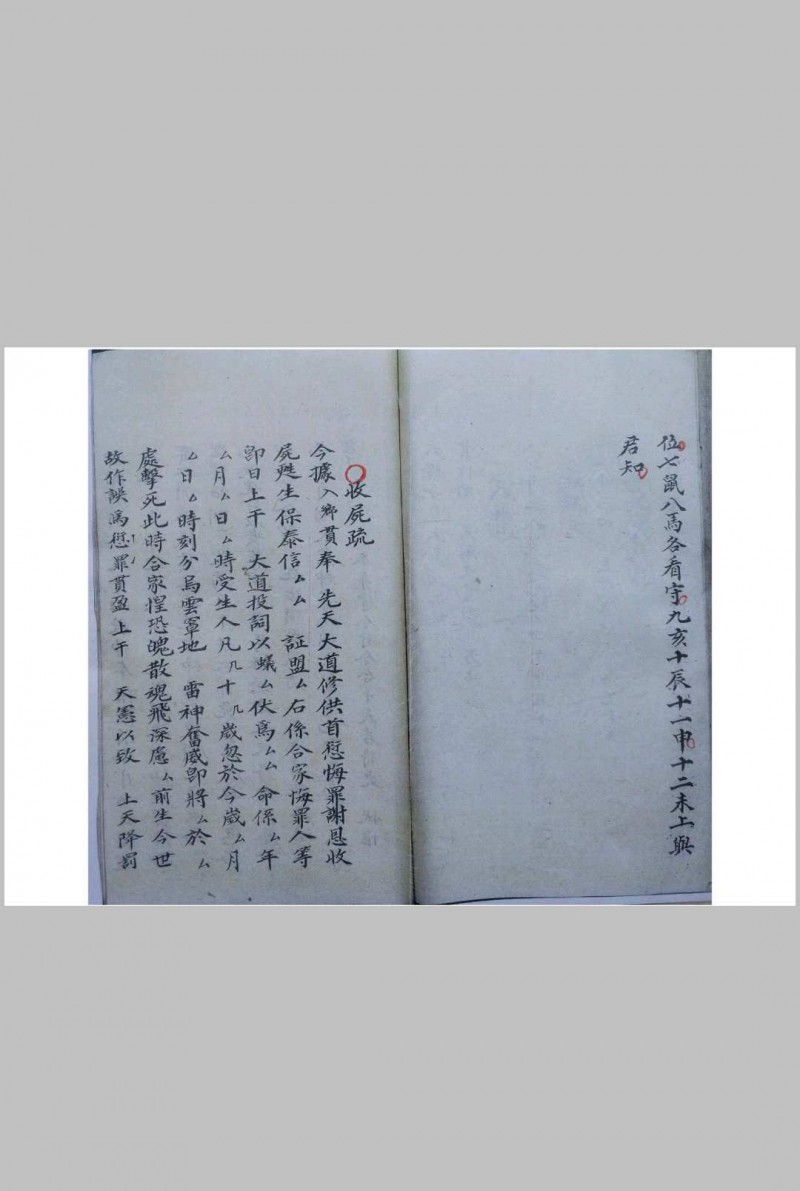 位七鼠八馬各看守九亥十辰十一申十二未上與
君知
收屍疏
今據入鄉貫奉 先天大道修供首愆悔罪謝恩收
屍甦生保泰信厶厶 証盟厶右係合家悔罪人等
即日上干 大道投詞以蟻厶伏為厶厶 命係厶年
厶月厶日厶時受生人凡几十几歲忽於今歲厶月
厶日厶時刻分烏雲罩地 雷神奮威即將厶於厶
處擊死此時合家惶恐魄散魂飛深慮厶前生今世
故作誤為愆罪貫盈上干 天憲以致 上天降罰